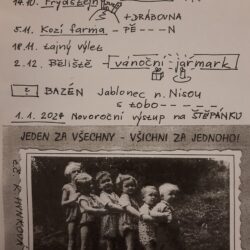 14.10. Frýdštejn
+ DRÁBOVNA
5.11. Kozí farma - PĚ---N
18.11. tajný výlet
2.12. Běliště - vánoční jarmark
BAZÉN Jablonec n. Nisou
s tobo-----
1.1.2024 Novoroční výstup na ŠTĚPÁNKU
JEDEN ZA VŠECHNY - VŠICHNI ZA JEDNOHO!